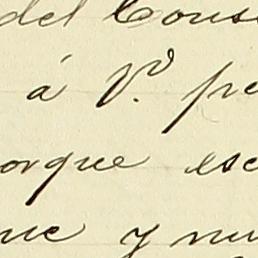 del Cons
á Vd. pre
orque esc
ue y nu